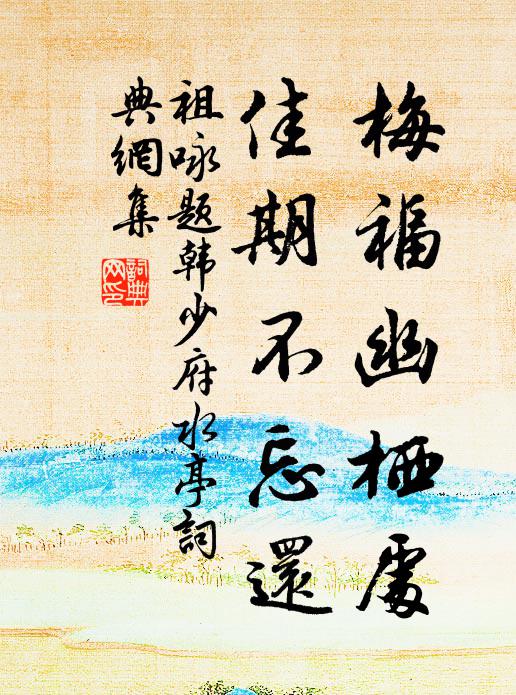 梅福幽栖處
佳期不忘還
祖咏题韩少府水亭詞
典網集
詞典
网印